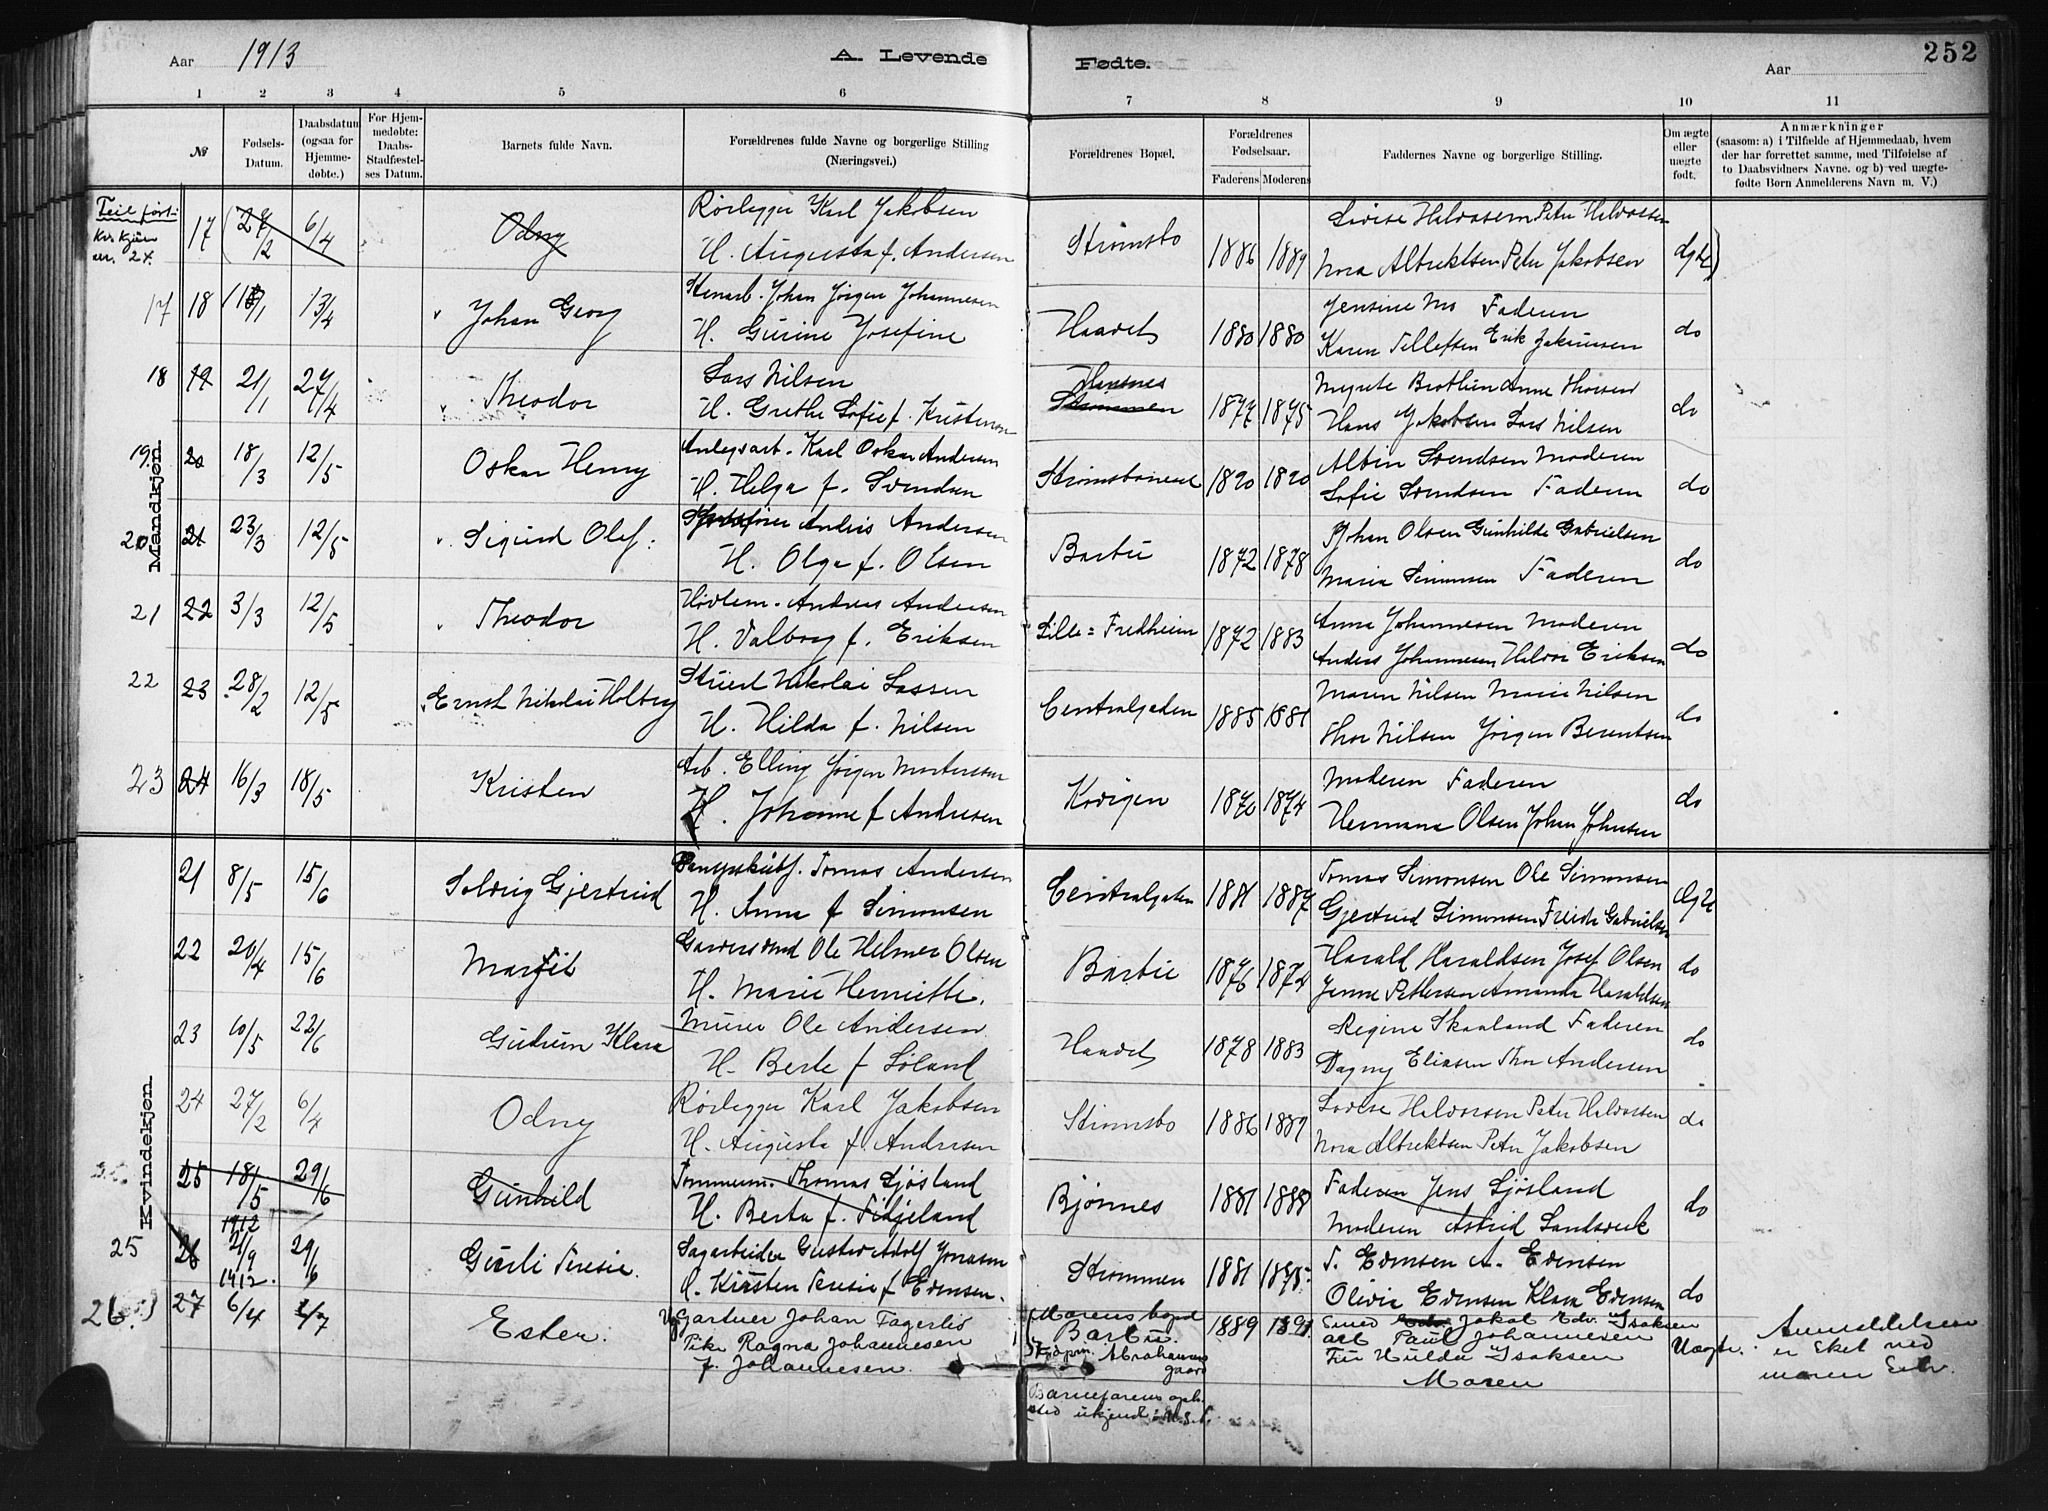 Aar 1913
A. Levende Fødte.
Aar
252
1 2 3 4 5 6 7 8 9 10 11
№
Fødsels-
Datum.
Daabsdatum
(ogsaa for
Hjemme-
døbte.)
For Hjem-
medøbte:
Daabs-
Stadfæstel-
ses Datum.
Barnets fulde Navn.
Forældrenes fulde Navne og borgerlige Stilling
(Næringsvei.)
Forældrenes Bopæl.
Forældrenes
Fødselsaar.
Faderens Moderens
Faddernes Navne og borgerlige Stilling.
Om ægte
eller
uægte
født.
Anmærkninger
(saasom: a) i Tilfælde af Hjemmedaab, hvem
der har forrettet samme, med Tilføielse af
to Daabsvidners Navne. og b) ved uægte-
fødte Børn Anmelderens Navn m. V.)
Mandkjøn
Feil ført:
17 27/2 6/4 Odny Rørlegger Karl Jakobsen Strømsbo 1886 1889 Lovise Halvorsen Petter Halvorsen
H. Augusta f. Andersen Nora Albrektsen Peter Jakobsen
17 18 13/4 Johan Georg Stenarb. Johan Jørgen Johannesen Haavet 1880 1880 Jensine Mo Faderen do
H. Gurine Josefine Karen Tellefsen Erik Jakobsen
18 19 21/1 27/4 Theodor Lars Nilsen Strømmen 1877 1875 do
H. Grethe Sofie f. Hans Jakobsen Lars Nilsen
19 20 18/3 12/5 Oskar Henry Anlegsarb. Karl Oskar Andersen 1890 1890 Albin Svendsen Moderen do
H. Helga f. Svendsen Sofie Svendsen Faderen
20 21 23/3 12/5 Sigurd Olaf Andersen Barbu 1872 1878 Johan Olsen Gunhilde Gabrielsen do
H. Olga f. Olsen Maria Simonsen Faderen
21 22 3/3 12/5 Theodor Høvlem. Andreas Andersen Lille=Fredheim 1872 1883 Anna Johannesen Moderen do
H. Valborg f. Eriksen Anders Johannesen Halvor Eriksen
22 23 28/2 12/5 Ernst Nikolai Holberg Stuert Nikolai Lassen Centralgaden 1885 1881 Maren Nilsen Marie Nilsen do
H. Hilda f. Nilsen Thor Nilsen Jørgen Berentsen
23 24 16/3 18/5 Kristen Arb. Elling Jørgen Mortensen 1870 1874 Moderen Faderen do
H. Johanne f Andresen Hermana Olsen Johan Johnsen
Kvindekjøn
21 8/5 15/6 Solveig Gjertrud Tomas Andersen Centralgaden 1881 1887 Tomas Simonsen Ole Simonsen
H. Anna f Simonsen Gjertrud Simonsen Frida Gabrielsen
22 20/4 15/6 Margit Garversvend Ole Helmer Olsen Barbu 1876 1874 Harald Haraldsen Josef Olsen do
H. Marie Henriette. Jenny Pettersen Amanda Haraldsen
23 10/5 22/6 Gudrun Klara Murer Ole Andersen Haavet 1878 1883 Regine Skaaland Faderen do
H. Berte f Løland Dagny Eliasen Thor Andersen
24 27/2 6/4 Odny Rørlegger Karl Jakobsen Strømsbo 1886 1889 Lovise Halvorsen Peter Halvorsen do
H. Augusta f Andresen Nora Albrektsen Petter Jakobsen
25 18/5 29/6 Gunhild Tømmerm. Thomas Ljøsland Bjønnes 1881 1888 Faderen Jens Ljøsland do
H. Berta f. Fidjeland Moderen Astrid Landsverk
25 26 1912 21/9 29/6 Gurli Teresie. Sagarbeider Gustav Adolf Jonassen Strømmen 1881 1875 T. Evensen A. Evensen do
H. Kirsten Teresie f Evensen. Olivia Evensen Klara Evensen
26 27 1912 6/4 Ester. Ug Gartner Johan Fagerlid Morens bopæl 1889 1891 Smed Jakob Edv. Isaksen Uægte. Anmeldelsen
Pike Ragna Johannesen Barbu. arb Paul Johannesen er sket ved
f. Johannesen. Abrahams Fru Hulda Isaksen moren selv.
gaard Moren
Barnefarens op.
sted ukjendt